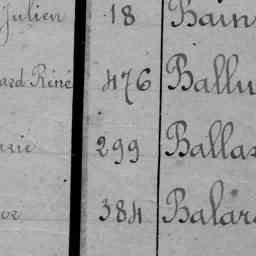 Julien 18 Bain
ard René 476 Ballu
299 Ballas
384 Balar